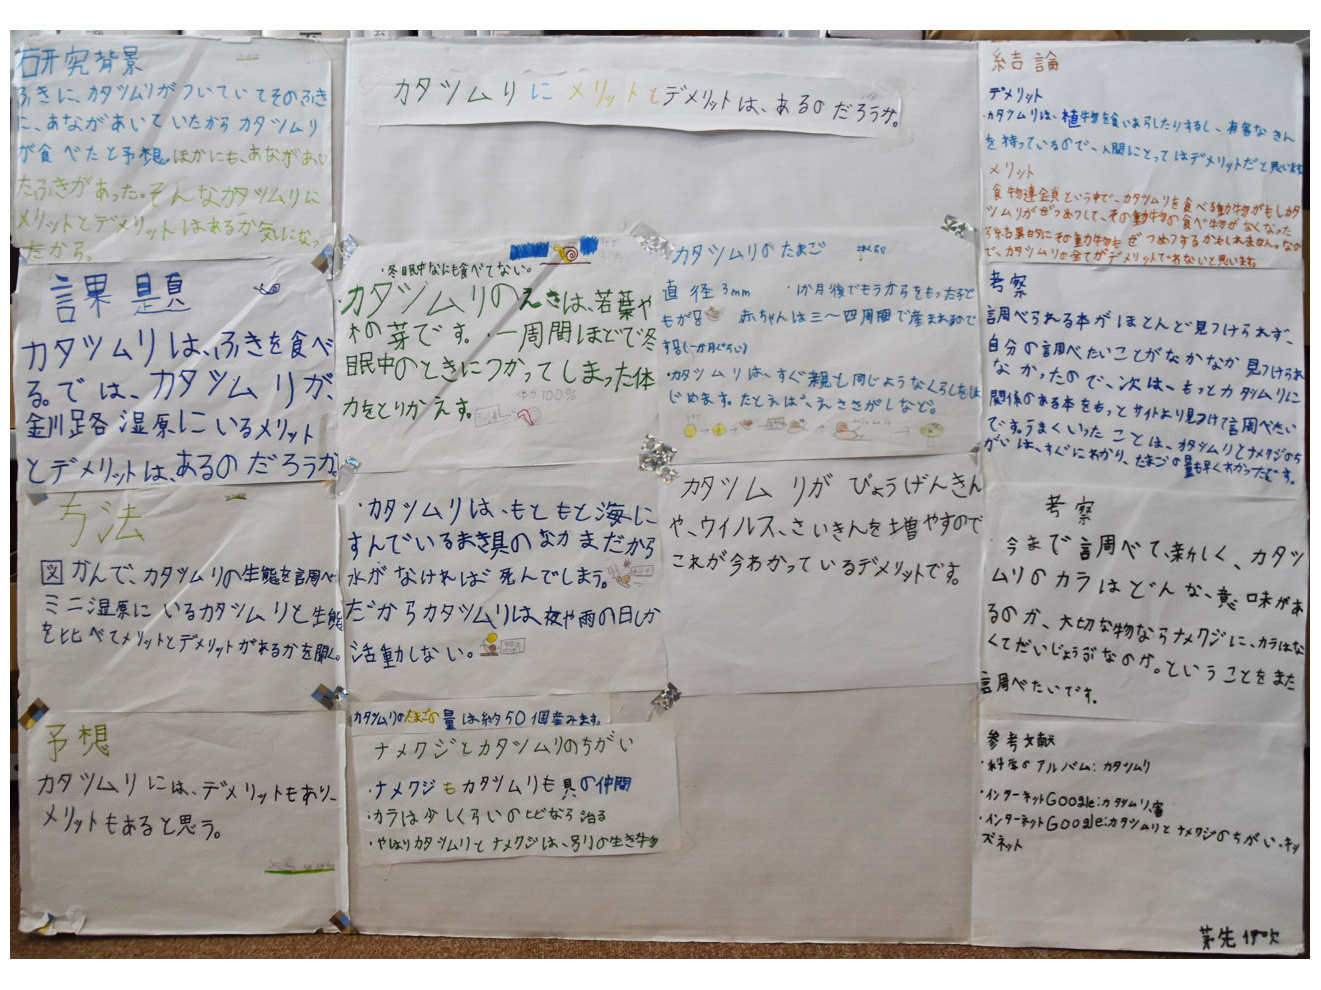 カタツムリにメリットとデメリットは、あるのだろうか。
研究背景
ふきに、カタツムリがついていてそのふき
に、あながあいていたからカタツムリ
が食べたと予想。ほかにも、あながあい
たふきがあった。そんなカタツムリに
メリットとデメリットはあるか気になっ
たから。
課題
カタツムリは、ふきを食べ
る。では、カタツムリが、
釧路湿原にいるメリット
とデメリットは、あるのだろうか。
方法
図かんで、カタツムリの生態を調べ
ミニ湿原にいるカタツムリと生態
を比べてメリットとデメリットがあるかを聞く。
予想
カタツムリには、デメリットもあり、
メリットもあると思う。
・冬眠中なにも食べてない。
・カタツムリのえさは、若葉や
木の芽です。・一周間ほどで冬
眠中のときにつかってしまった体
力をとりかえす。
100%
・カタツムリは、もともと海に
すんでいるまき貝のなかまだから
水がなければ死んでしまう。
だからカタツムリは、夜や雨の日しか
活動しない。
カタツムリのたまごの量は約50個産みます。
ナメクジとカタツムリのちがい
・ナメクジもカタツムリも貝の仲間
・カラは少しくらいのヒビなら治る
・やはりカタツムリとナメクジは、別の生き物
カタツムリのたまご
直径3mm ・1か月後でもうからをもった子ど
もが 赤ちゃんは三〜四周間で産まれるので
す
・カタツムリは、すぐ親と同じようなくらしをは
じめます。たとえば、えささがしなど。
カタツムリがびょうげんきん
や、ウイルス、さいきんを増やすので
これが今わかっているデメリットです。
結論
デメリット
・カタツムリは、植物を食いあらしたりするし、有害なきん
を持っているので、人間にとってはデメリットだと思います
メリット
食物連鎖という中で、カタツムリを食べる動物がもしカタ
ツムリがぜつめつして、その動物の食べ物がなくなった
ら
で、カタツムリの全てがデメリットではないと思います。
考察
調べられる本がほとんど見つけられず、
自分の調べたいことがなかなか見つけられ
なかったので、次は、もっとカタツムリに
関係のある本をもっとサイトより見つけて調べたい
です。うまくいったことは、カタツムリとナメクジのち
がいは、すぐにわかり、たまごの量も早くわかったです。
考察
今まで調べて、新しく、カタツ
ムリのカラはどんな、意味があ
るのか、大切な物ならナメクジに、カラはな
くてだいじょうぶなのか。ということをまた
調べたいです。
参考文献
・科学のアルバム:カタツムリ
・インターネットGoogle:カタツムリ、害
・インターネットGoogle:カタツムリとナメクジのちがい・キッ
ズネット